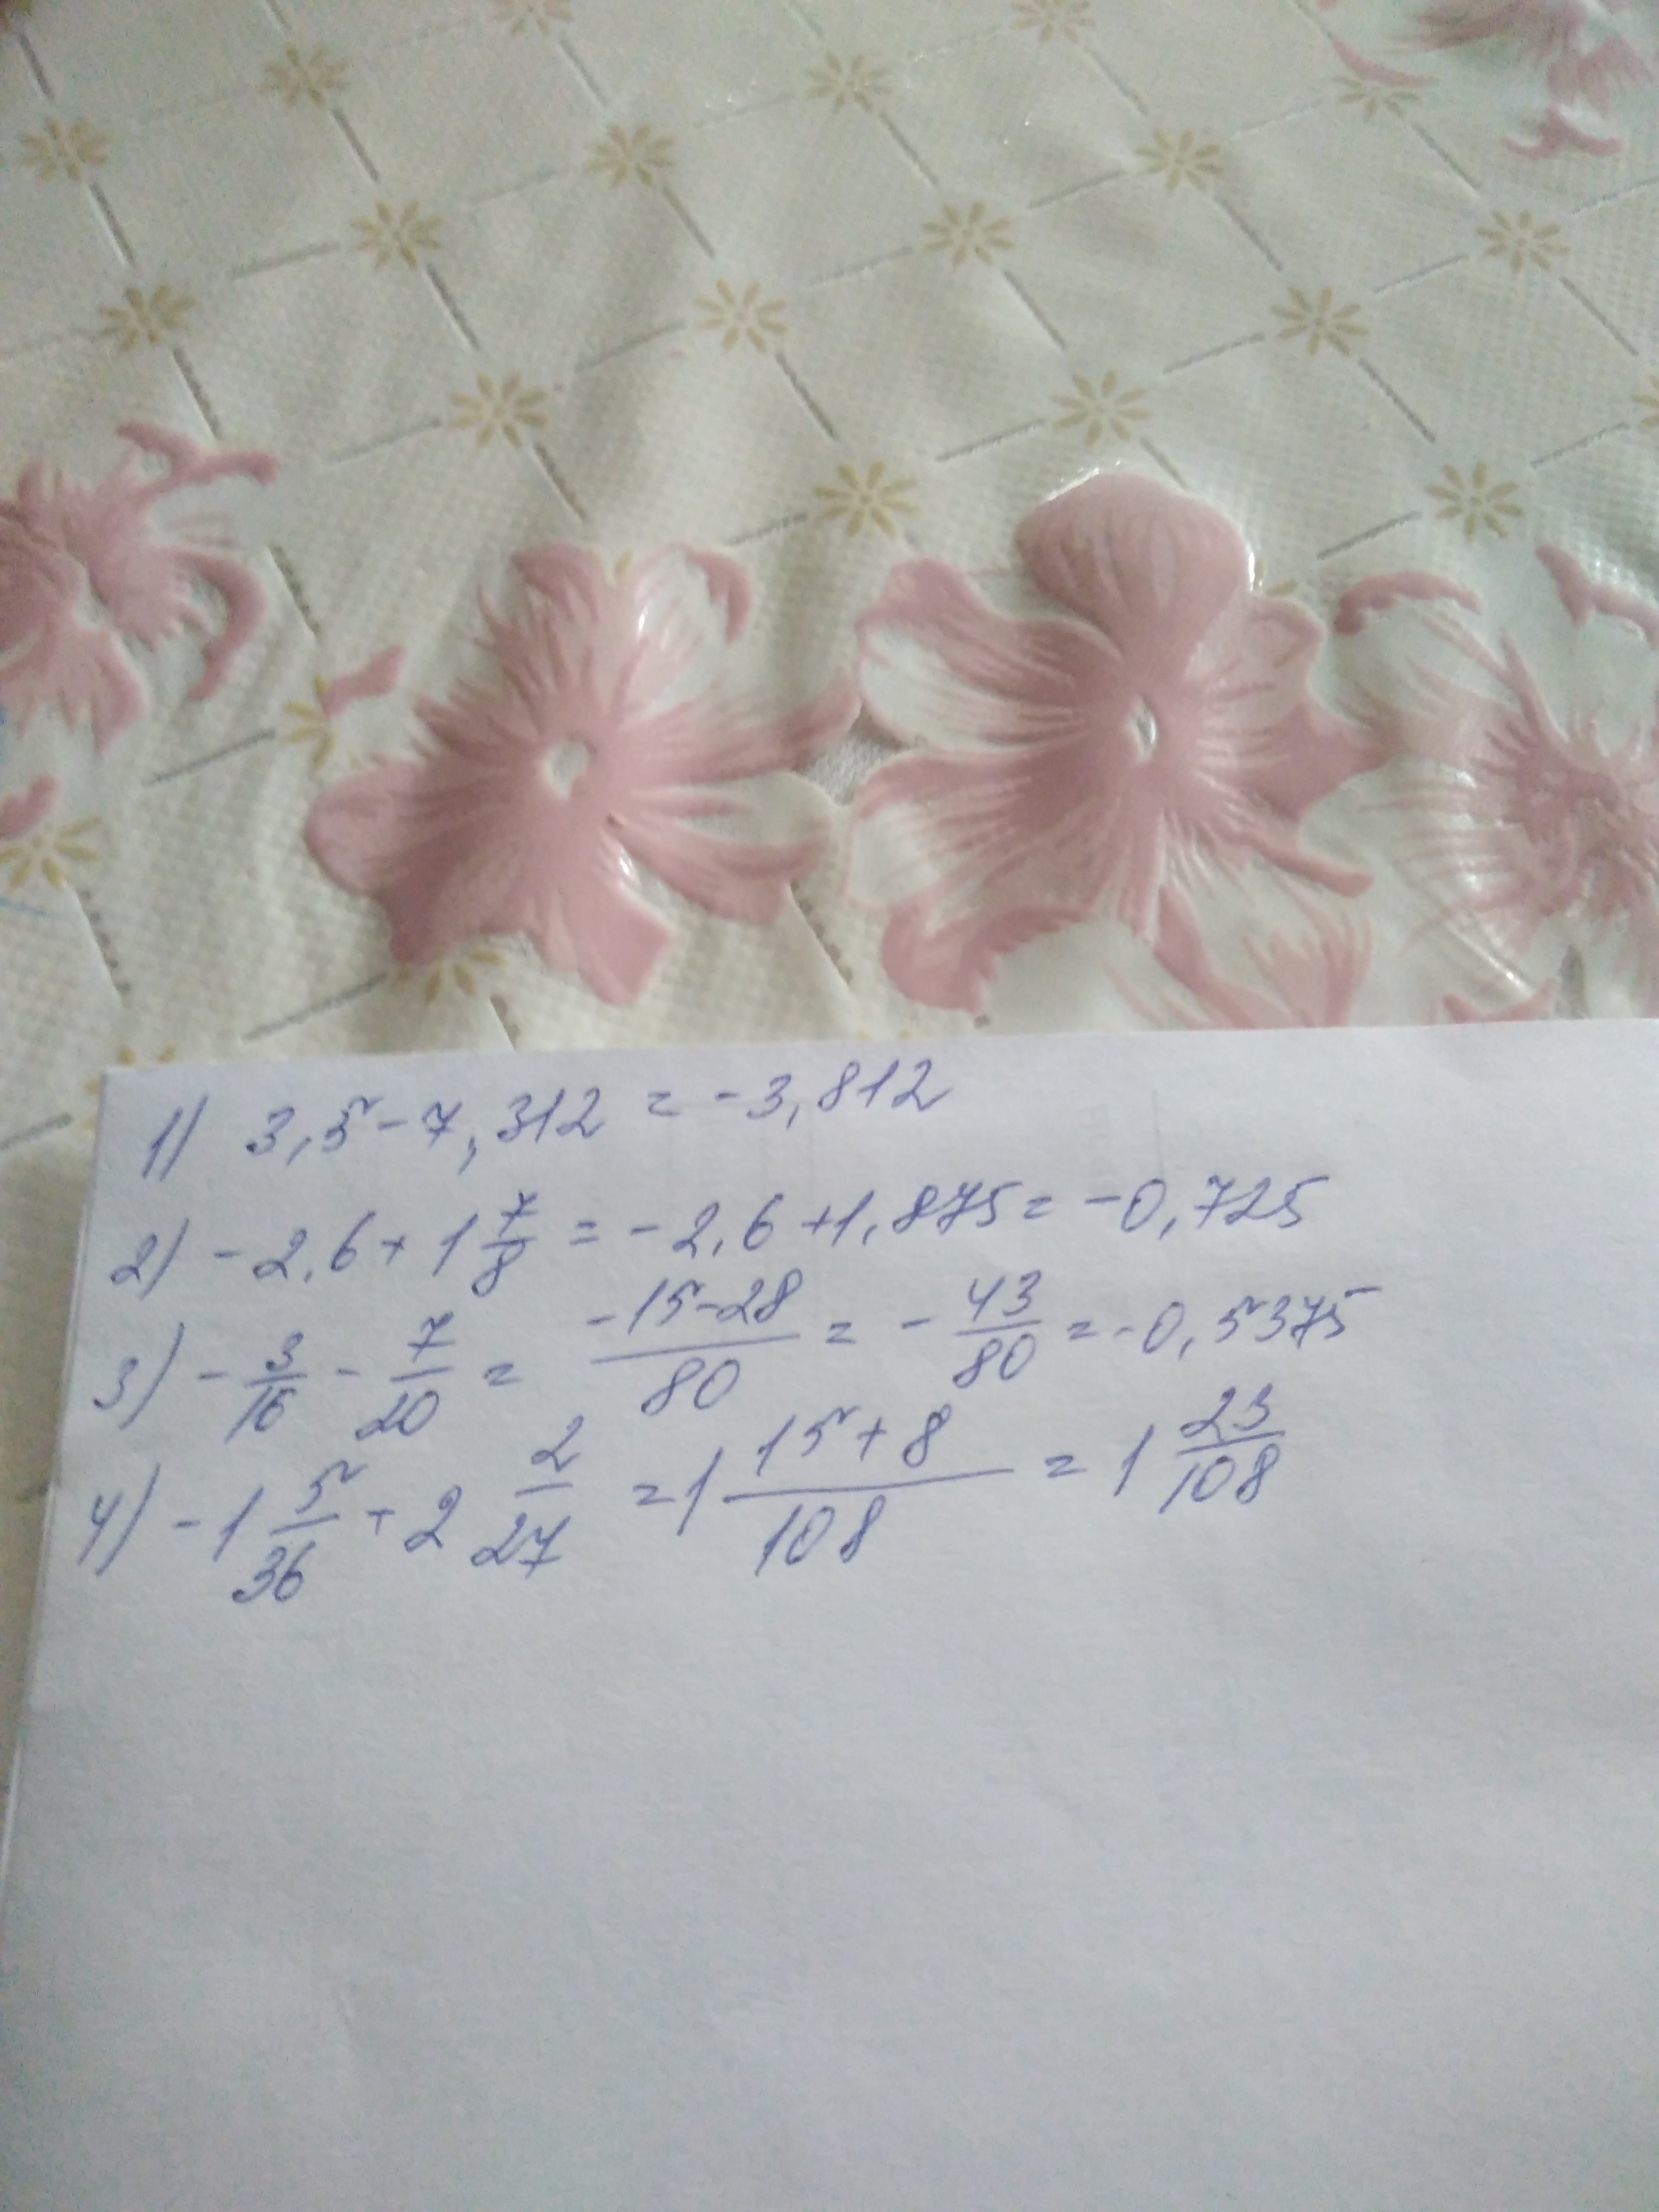 1) 3,5-7,312 = -3,812
2) -2,6+1 7/8 = -2,6+1,875= -0,725
3) - 3/16 - 7/20 = -15-28/80 = - 43/80 = -0,5375
4) -1 5/36 + 2 2/27 =1 15+8/108 = 1 23/108